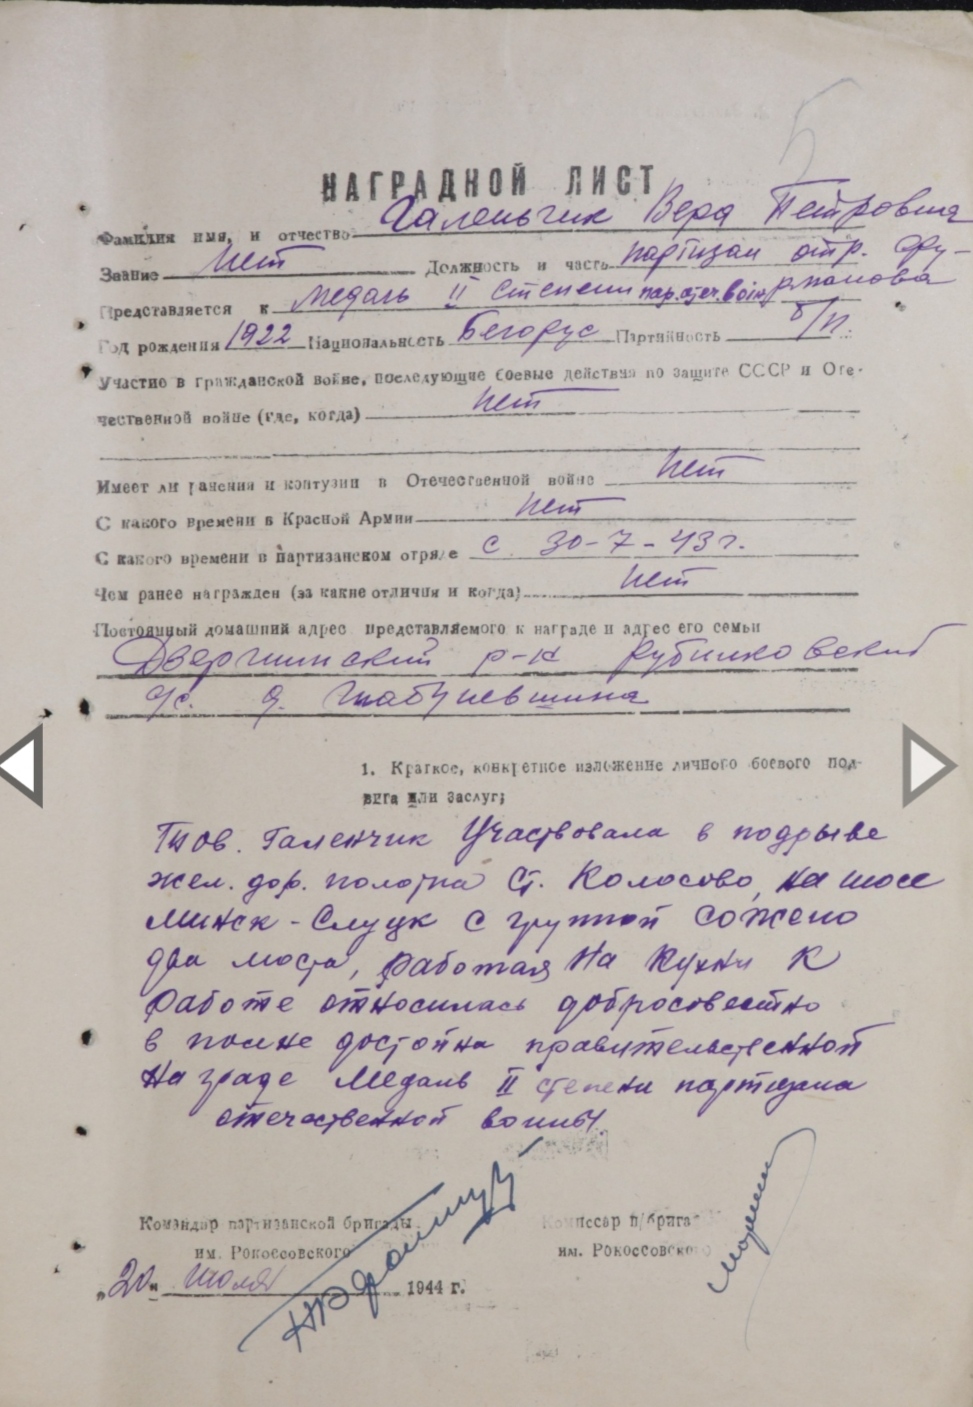 НАГРАДНОЙ ЛИСТ
Фамилия имя, и отчество Галеньчик Вера Петровна
Звание нет Должность и часть партизан отр. Фру-
Представляется к Медаль II степени пар. отеч. войн рманова
Год рождения 1922 Национальность Белорус Партийность б/п.
Участие в гражданской войне, последующие боевые действия по защите СССР и Оте-
чественной войне (где, когда) нет
Имеет ли ранения и контузии в Отечественной войне нет
С какого времени в Красной Армии нет
С какого времени в партизанском отряде с 30-7-43 г.
Чем ранее награжден (за какие отличия и когда) нет
Постоянный домашний адрес представляемого к награде и адрес его семьи
Дзержинский р-н Рубилковский
с/с. д.
1. Краткое, конкретное изложение личного боевого под-
вига или заслуг;
Тов. Галенчик Участвовала в подрыве
жел. дор. полотна ст. Колосово, на шосе
Минск-Слуцк с группой сожено
два моста, работая на кухни к
работе относилась добросовестно
в полне достойна правительственной
награде Медаль II степени партизана
отечественной войны.
Командир партизанской бригады Комиссар п/брига
им. Рокоссовского им. Рокоссовского
„20" июля 1944 г.